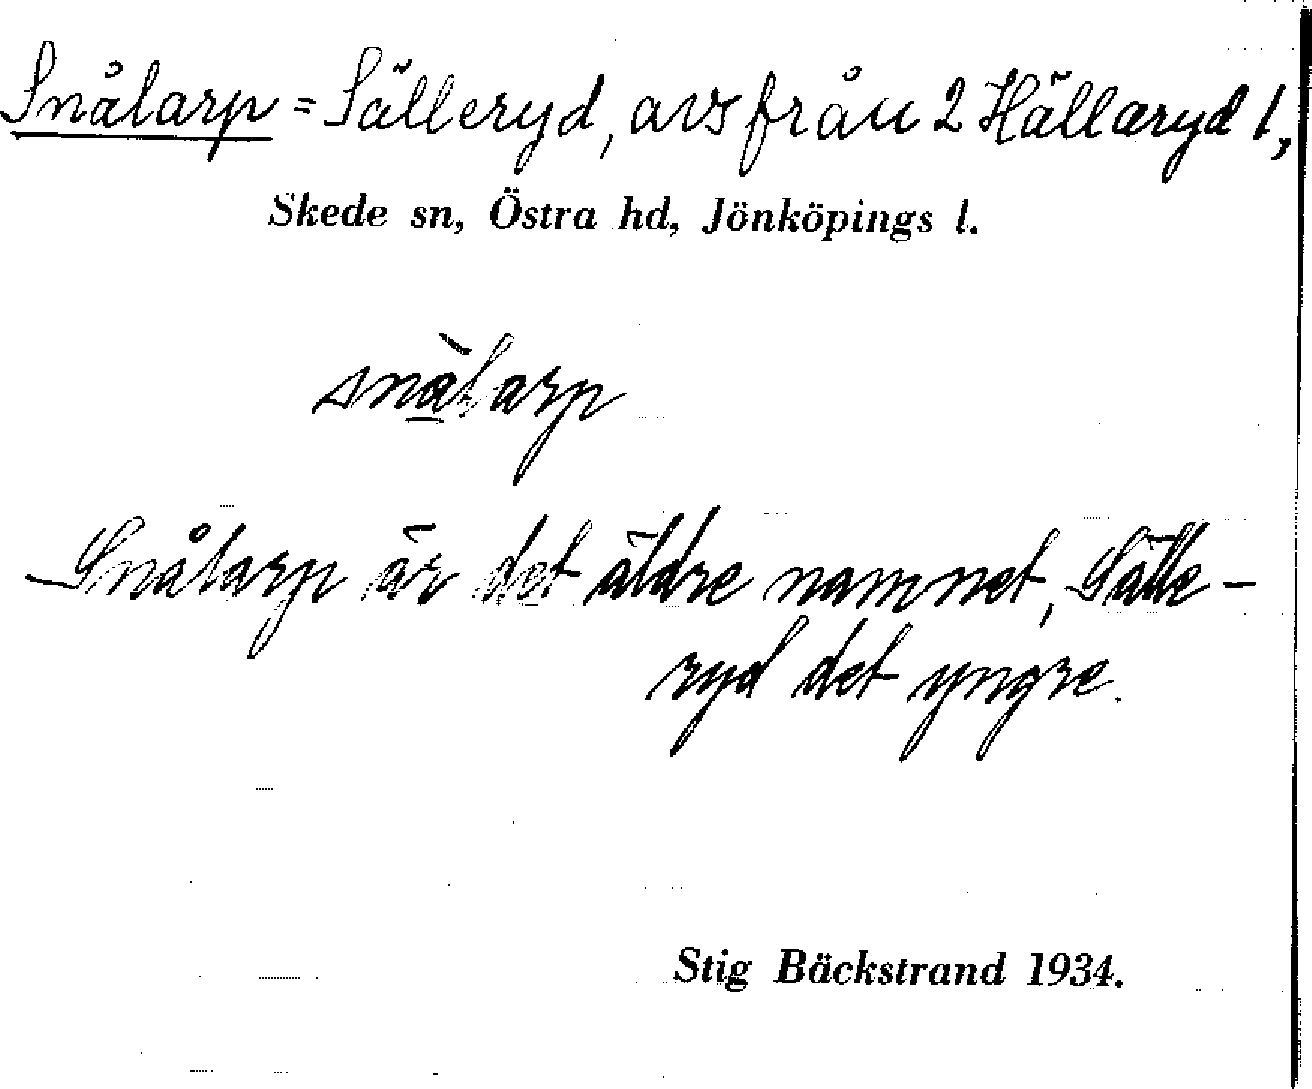 Snålarp = Sälleryd, avs från 2 Hällaryd 1,
Skede sn, Östra hd, Jönköpings l.
snàlarp
Snålarp är det äldre namnet, Sälle-
ryd det yngre.
Stig Bäckstrand 1934.